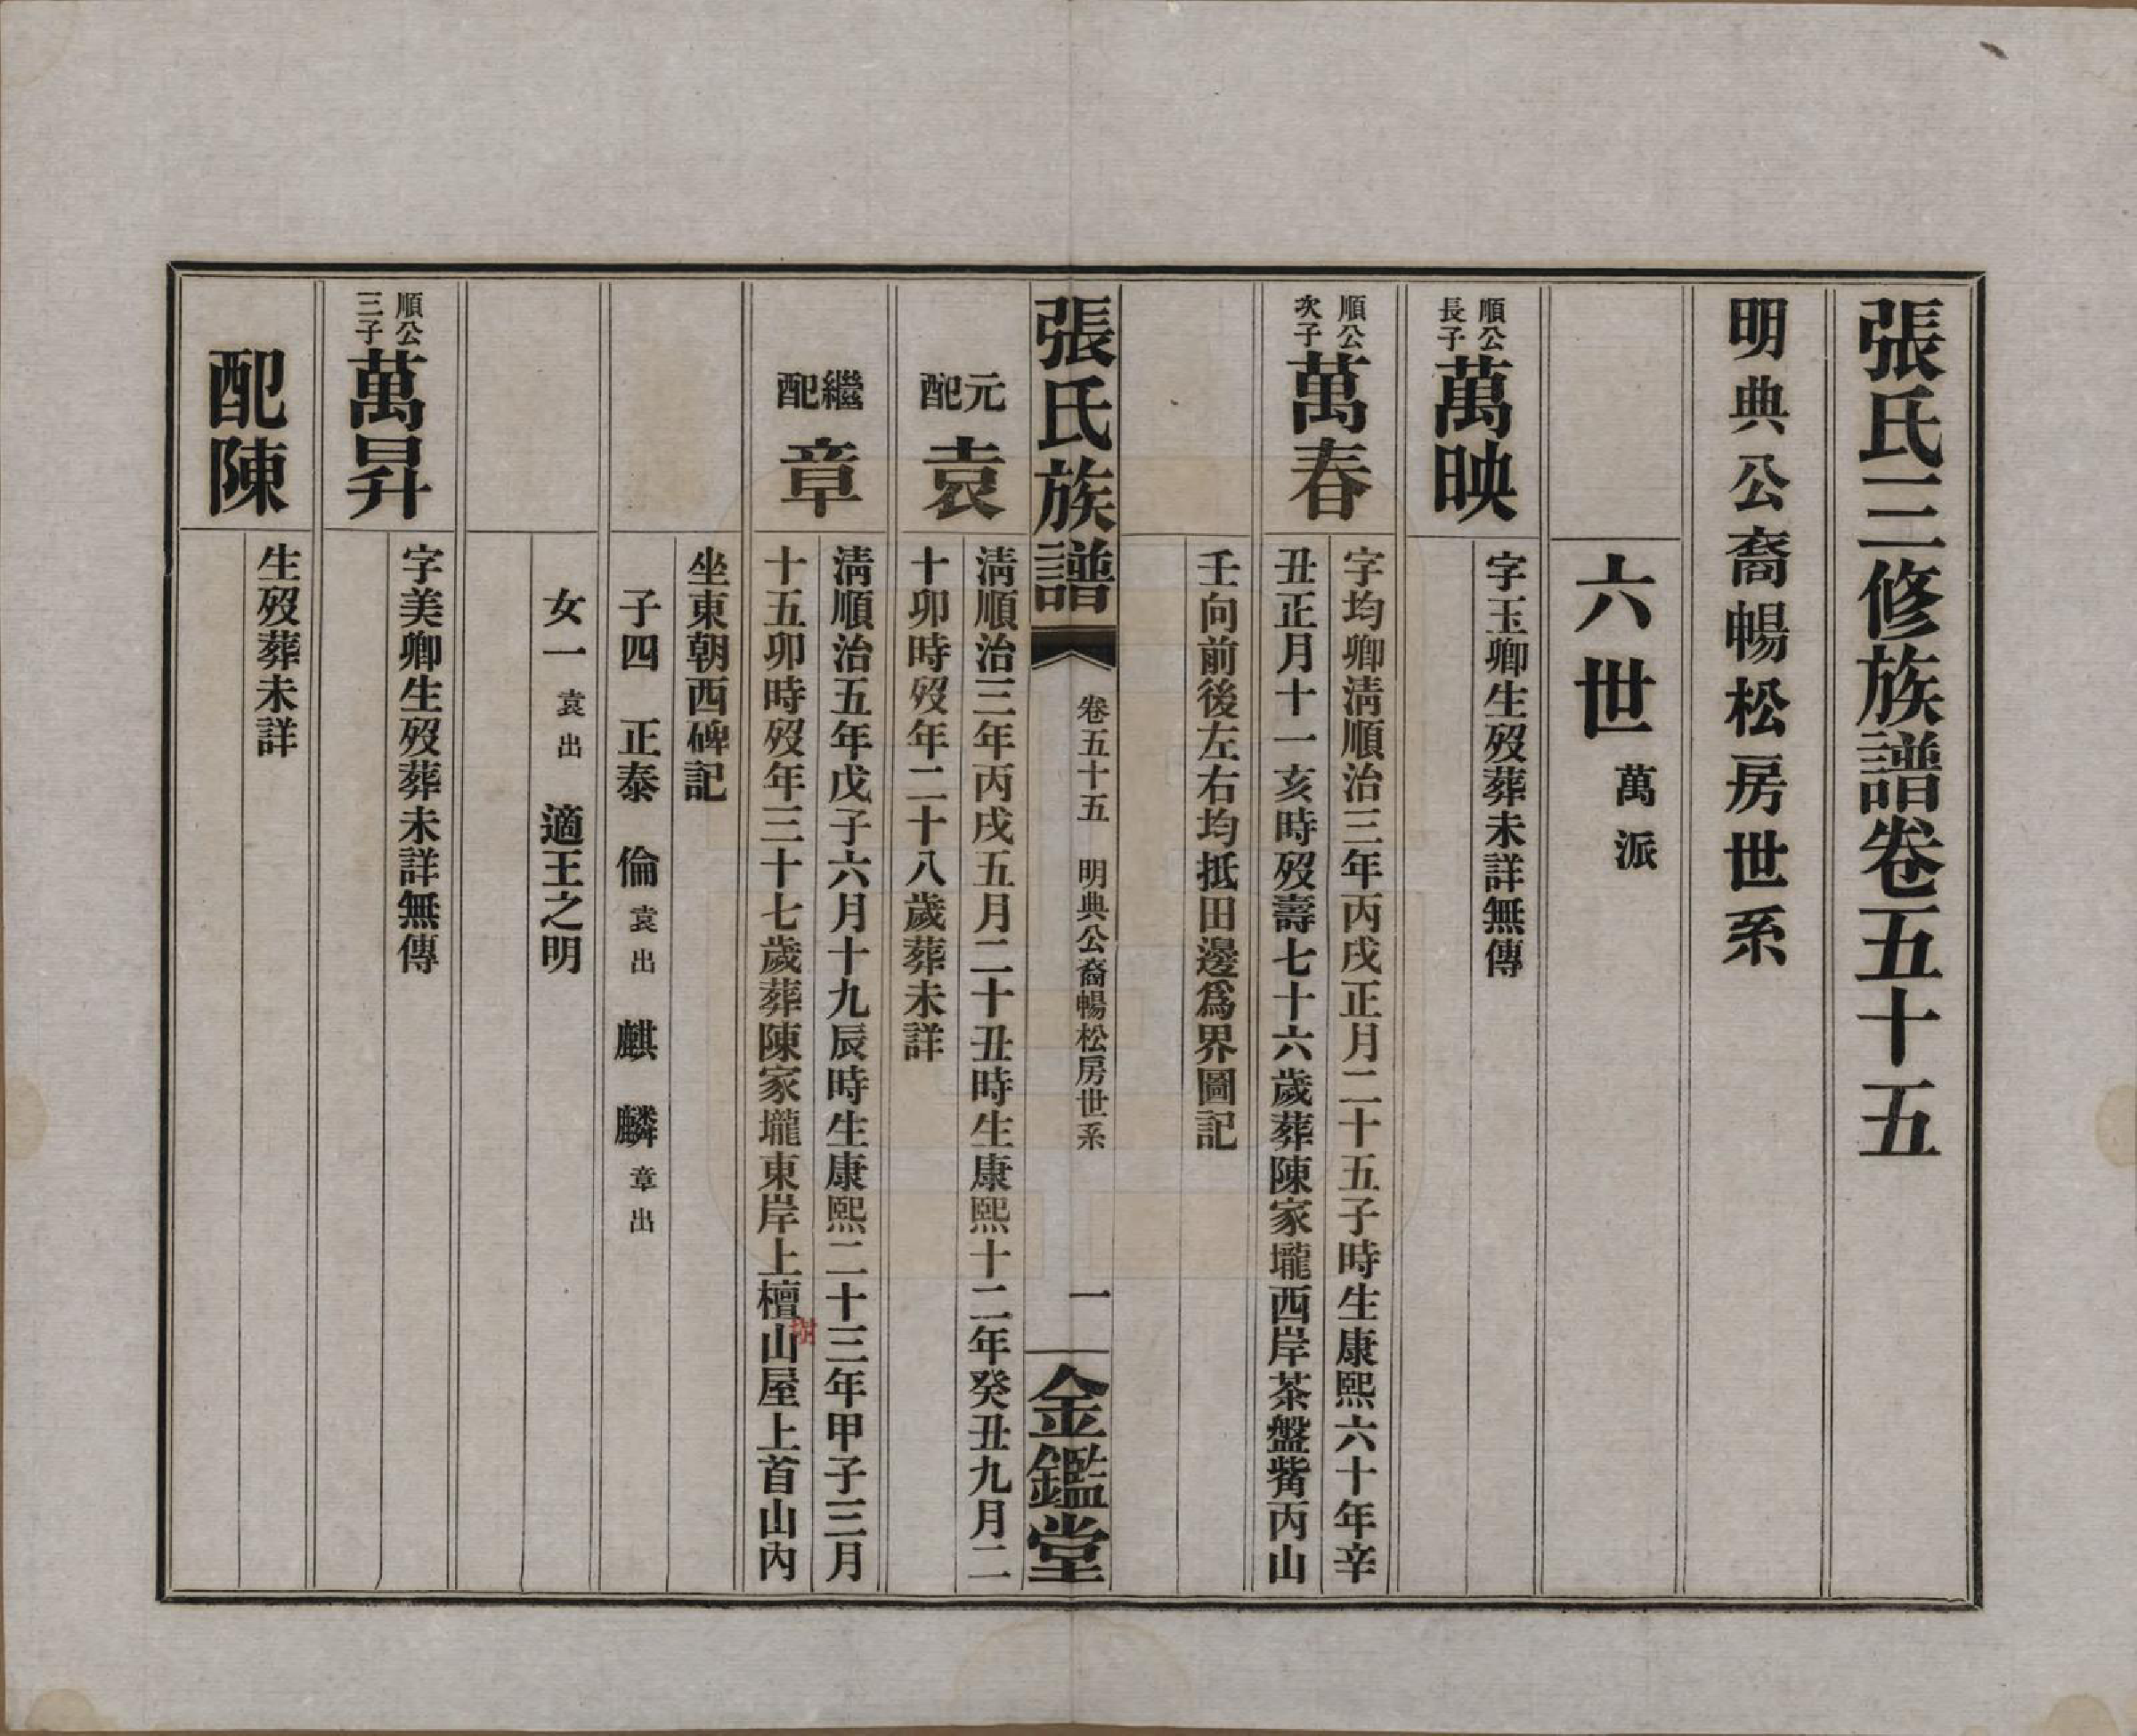 張氏三修族譜卷五十五
明典公裔暢松房世系
六世 萬派
順公長子 萬映
字玉卿生歿葬未詳無傳
順公次子 萬春
字均卿淸順治三年丙戌正月二十五子時生康熙六十年辛
丑正月十一亥時歿壽七十六歲葬陳家壠西岸茶盤觜丙山
壬向前後左右均抵田邊爲界圖記
張氏族譜 卷五十五 明典公裔暢松房世系 一 金鑑堂
元配 袁
淸順治三年丙戌五月二十丑時生康熙十二年癸丑九月二
十卯時歿年二十八歲葬未詳
繼配 章
淸順治五年戊子六月十九辰時生康熙二十三年甲子三月
十五卯時歿年三十七歲葬陳家壠東岸上檀樹山屋上首山內
坐東朝西碑記
子四 正泰 倫 袁出 麒 麟 章出
女一 袁出 適王之明
順公三子 萬昇
字美卿生歿葬未詳無傳
配陳
生歿葬未詳